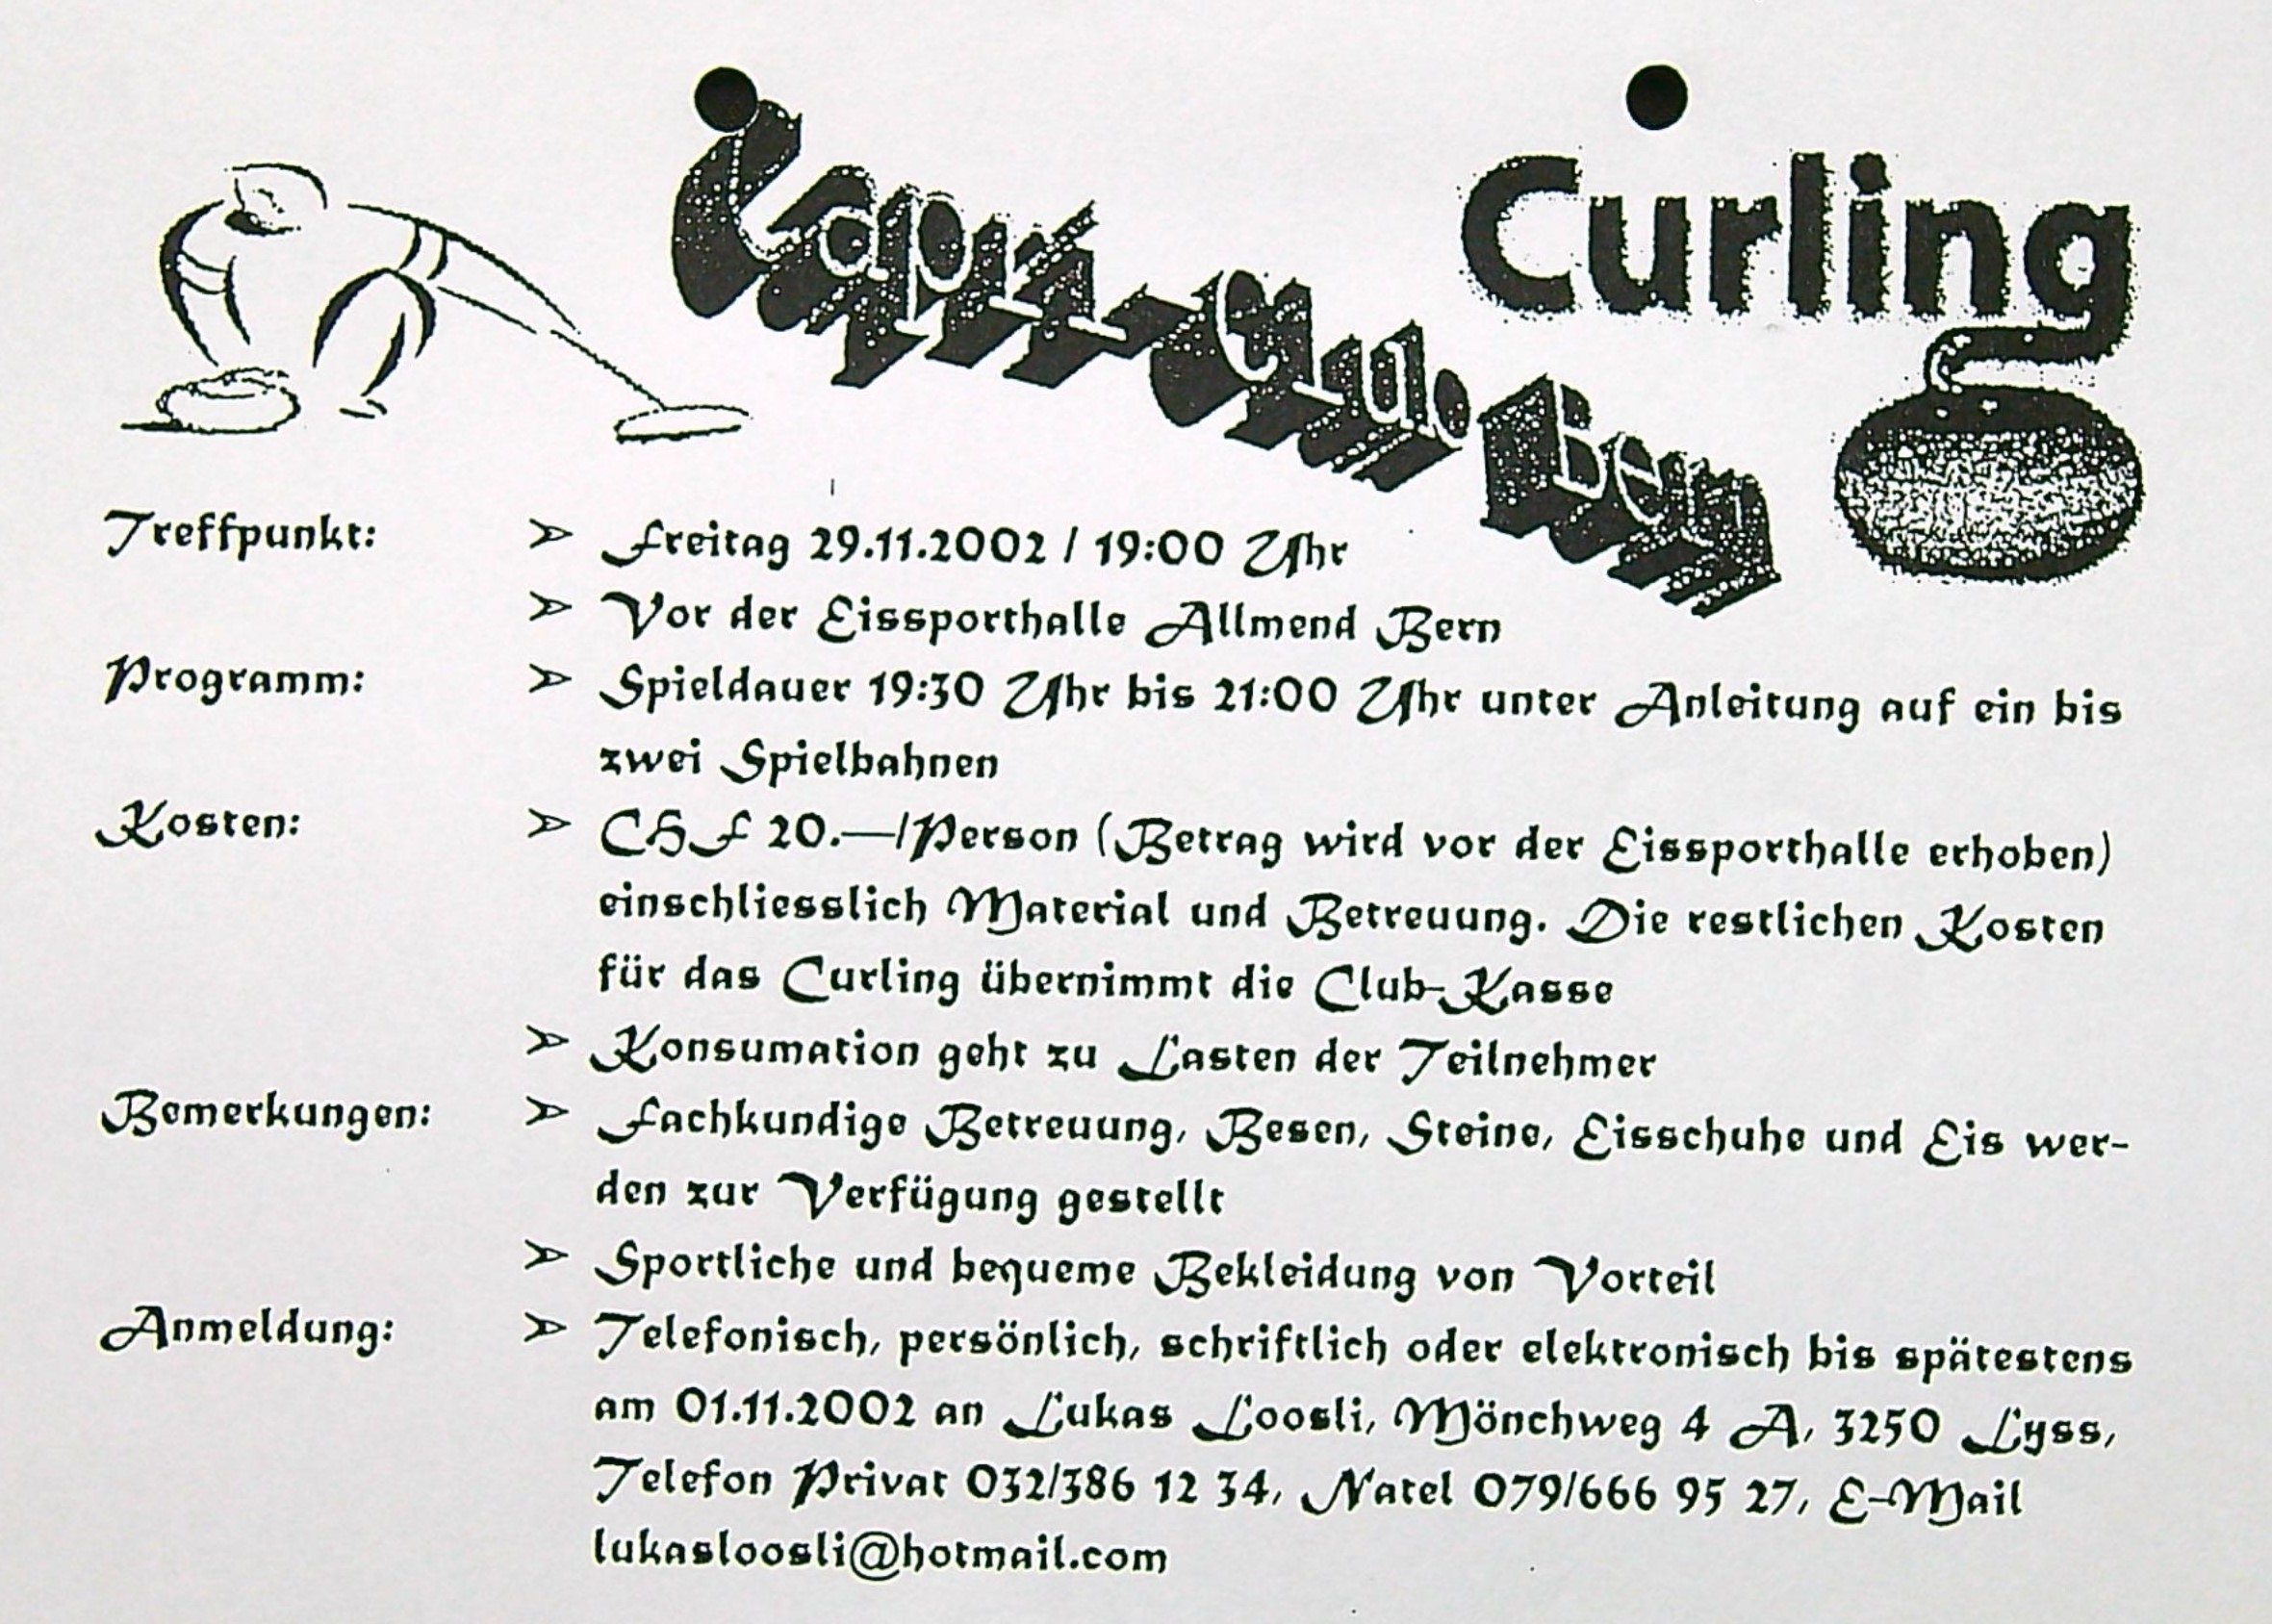 Capri-Club Bern
Curling
Treffpunkt: ➢ Freitag 29.11.2002 / 19:00 Uhr
➢ Vor der Eissporthalle Allmend Bern
Programm: ➢ Spieldauer 19:30 Uhr bis 21:00 Uhr unter Anleitung auf ein bis
zwei Spielbahnen
Kosten: ➢ CHF 20.—/Person (Betrag wird vor der Eissporthalle erhoben)
einschliesslich Material und Betreuung. Die restlichen Kosten
für das Curling übernimmt die Club-Kasse
➢ Konsumation geht zu Lasten der Teilnehmer
Bemerkungen: ➢ Fachkundige Betreuung, Besen, Steine, Eisschuhe und Eis wer-
den zur Verfügung gestellt
➢ Sportliche und bequeme Bekleidung von Vorteil
Anmeldung: ➢ Telefonisch, persönlich, schriftlich oder elektronisch bis spätestens
am 01.11.2002 an Lukas Loosli, Mönchweg 4 A, 3250 Lyss,
Telefon Privat 032/386 12 34, Natel 079/666 95 27, E-Mail
lukasloosli@hotmail.com